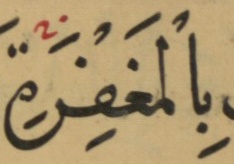 بِالْمَغْفِرَةِ